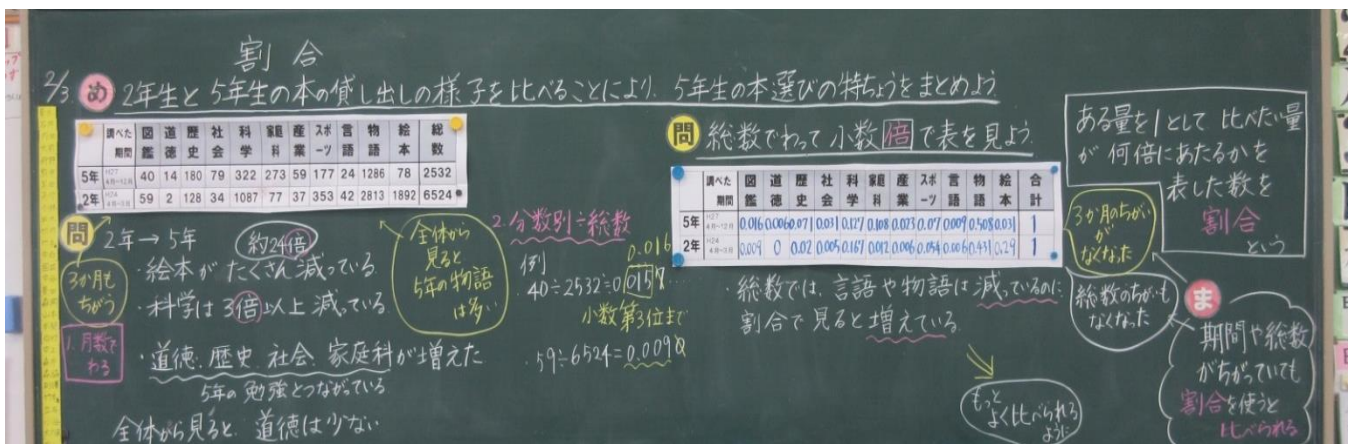 割合
2/3 め 2年生と5年生の本の貸し出しの様子を比べることにより、5年生の本選びの特ちょうをまとめよう
調べた期間 図鑑 道徳 歴史 社会 科学 家庭科 産業 スポーツ 言語 物語 絵本 総数
5年 H27 4月~12月 40 14 180 79 322 273 59 177 24 1286 78 2532
2年 H24 4月~3月 59 2 128 34 1087 77 37 353 42 2813 1892 6524
問 2年→5年
約24倍
・絵本がたくさん減っている
・科学は3倍以上減っている
3か月もちがう
1.月数でわる
・道徳、歴史、社会、家庭科が増えた
5年の勉強とつながっている
全体から見ると、道徳は少ない
全体から
見ると
5年の物語
は多い
2.分数別÷総数
例
0.016
40÷2532=0.0157…
小数第3位まで
59÷6524=0.0090
問 総数でわって小数倍で表を見よう
調べた期間 図鑑 道徳 歴史 社会 科学 家庭科 産業 スポーツ 言語 物語 絵本 合計
5年 H27 4月~12月 0.016 0.006 0.071 0.031 0.127 0.108 0.023 0.07 0.009 0.508 0.031 1
2年 H24 4月~3月 0.009 0 0.02 0.005 0.167 0.012 0.006 0.054 0.006 0.431 0.29 1
・総数では、言語や物語は減っているのに
割合で見ると増えている
もっと
よく比べられる
ように
ある量を1として比べたい量
が何倍にあたるかを
表した数を
割合
という
3か月のちがい
が
なくなった
総数のちがいも
なくなった
ま
期間や総数
がちがっていても
割合を使うと
比べられる